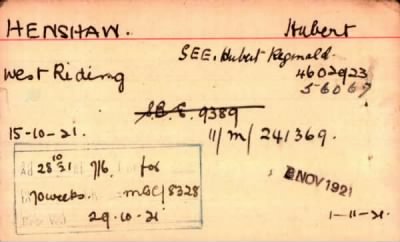 HENSHAW. Hubert
SEE. Hubert Reginald.
West Riding 4602923
56067
SB. E. 9389
15-10-21. 11/M/241369.
Ad 28 10 21 7/6. for
70 weeks. MBC/8328
29.10.21
2 NOV 1921
1-11-21.